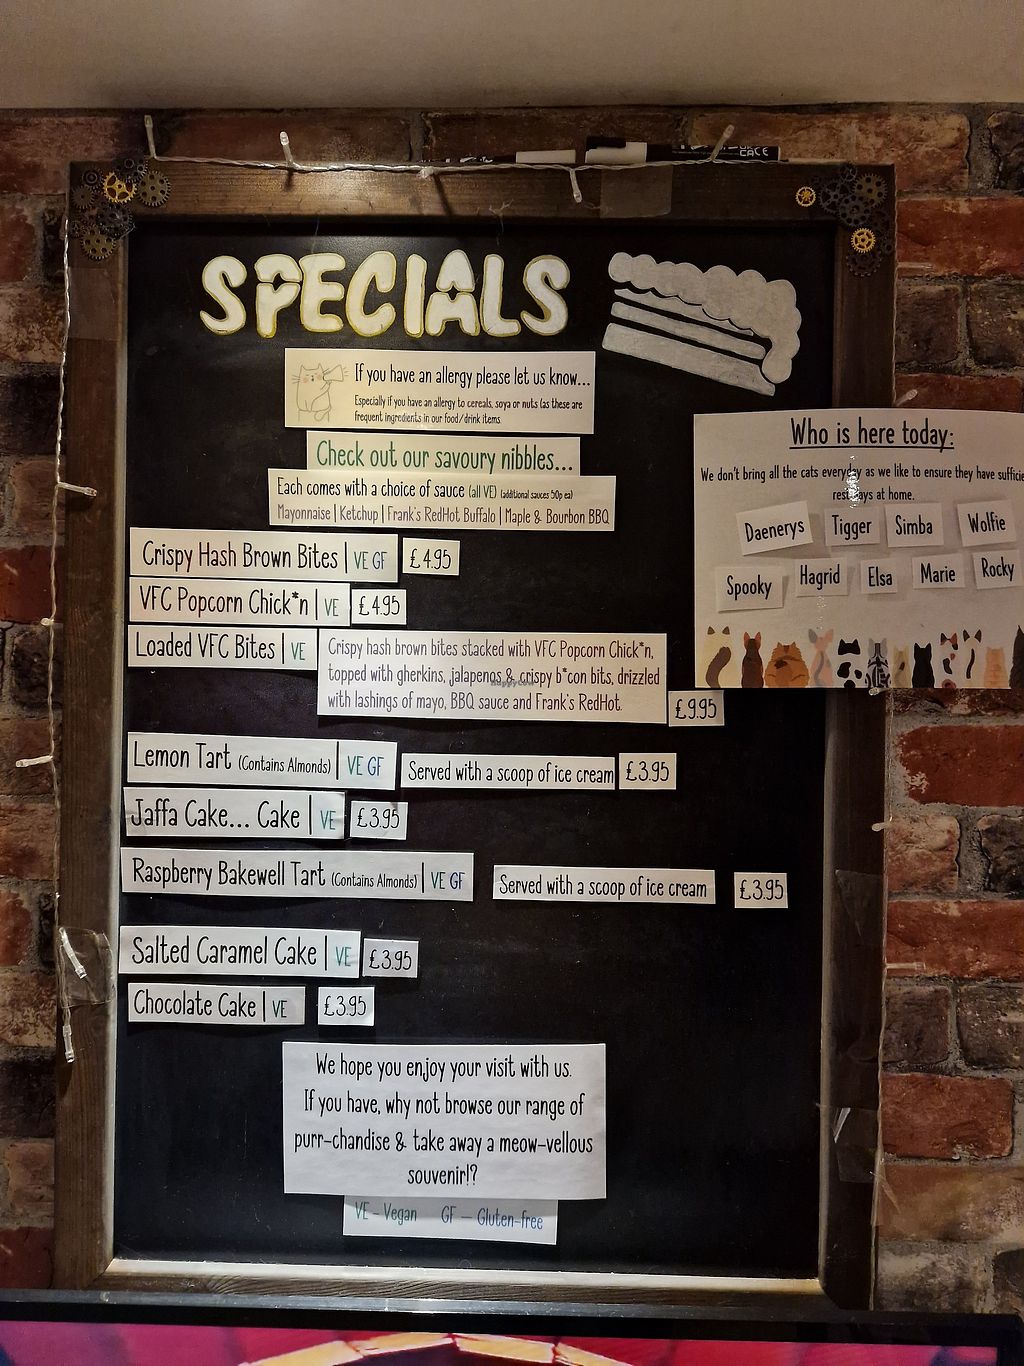 SPECIALS
If you have an allergy please let us know...
Especially if you have an allergy to cereals, soya or nuts (as these are
frequent ingredients in our food/drink items.
Check out our savoury nibbles...
Each comes with a choice of sauce (all VE) (additional sauces 50p ea)
Mayonnaise | Ketchup | Frank's RedHot Buffalo | Maple & Bourbon BBQ
Crispy Hash Brown Bites | VE GF £4.95
VFC Popcorn Chick*n | VE £4.95
Loaded VFC Bites | VE
Crispy hash brown bites stacked with VFC Popcorn Chick*n,
topped with gherkins, jalapenos & crispy b*con bits, drizzled
with lashings of mayo, BBQ sauce and Frank's RedHot.
£9.95
Lemon Tart (Contains Almonds) | VE GF Served with a scoop of ice cream £3.95
Jaffa Cake... Cake | VE £3.95
Raspberry Bakewell Tart (Contains Almonds) | VE GF Served with a scoop of ice cream £3.95
Salted Caramel Cake | VE £3.95
Chocolate Cake | VE £3.95
We hope you enjoy your visit with us.
If you have, why not browse our range of
purr-chandise & take away a meow-vellous
souvenir!?
VE - Vegan GF - Gluten-free
Who is here today:
We don't bring all the cats everyday as we like to ensure they have
rest days at home.
Daenerys Tigger Simba Wolfie
Spooky Hagrid Elsa Marie Rocky
HappyCow